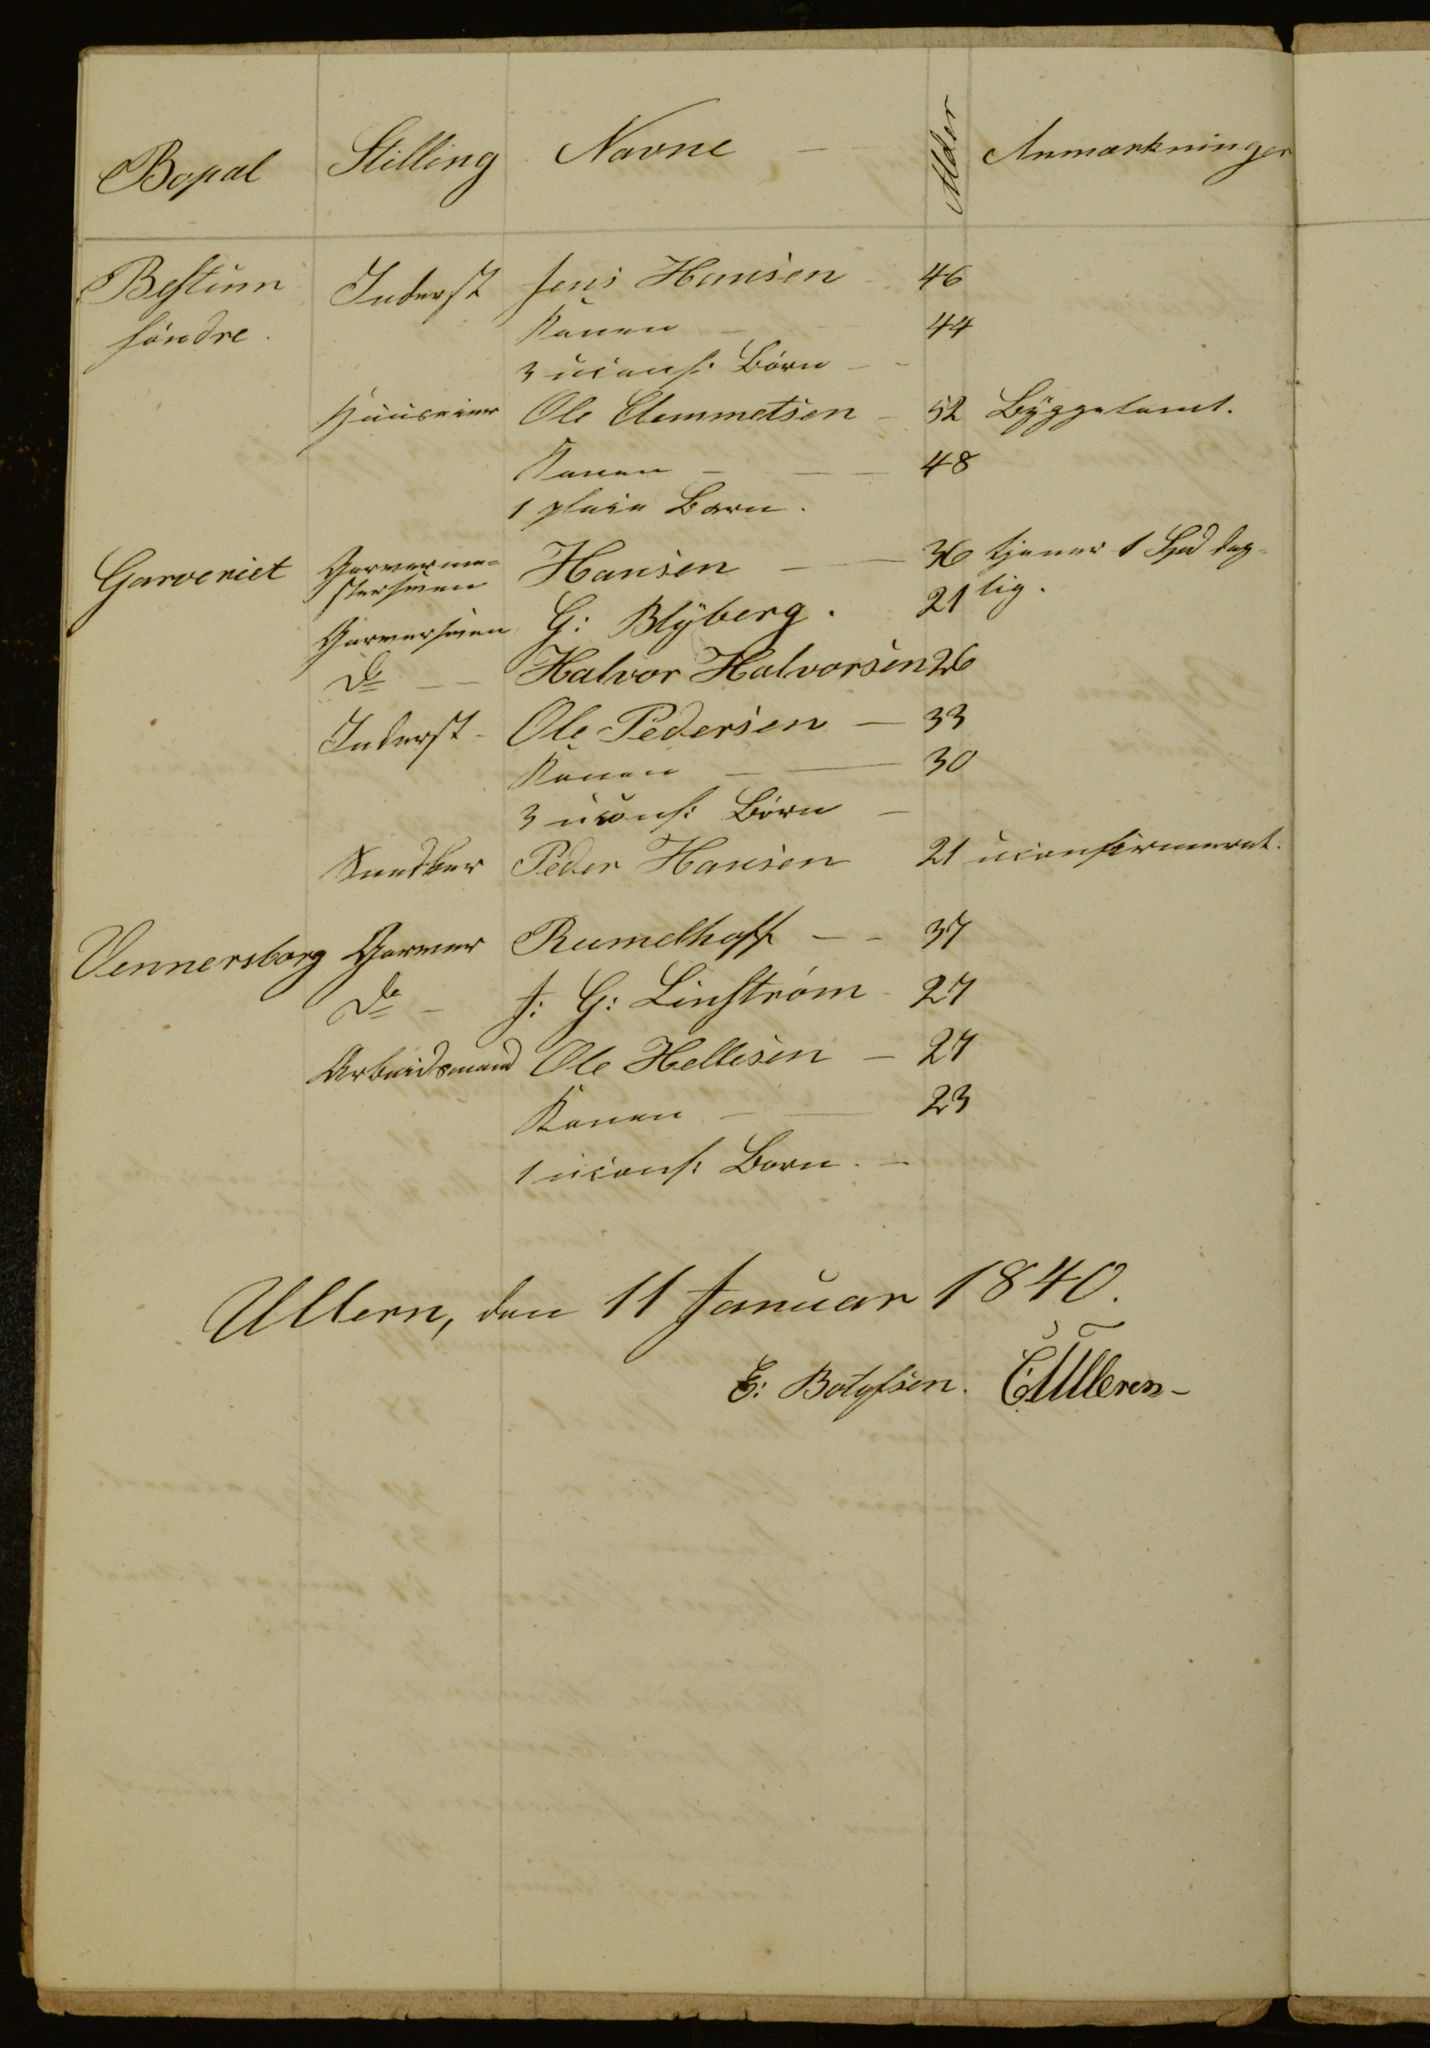 Bopæl Stilling Navne — Alder Anmærkninger
Bestum Inderst Jens Hansen 46
söndre. Konen — 44
3 uconf: Börn —
Huuseier Ole Clemmetsen — 52 Byggetomt.
Konen — 48
1 Barn.
Garveriet Garverme-
stersven Hansen — 36 tjener 1 Spd dag-
lig.
Garversven G: Blÿberg. 21
Do — Halvor Halvorsen 26
Inderst — Ole Pedersen — 33
Konen — 30
3 uconf: Börn —
Peder Hansen 21 uconfirmeret.
Vennersborg Garver Rumelhoff — 37
Do — J: G: Linström — 27
Arbeidsmand Ole Hellesen — 27
Konen — 23
1 uconf: Barn. —
Ullern, den 11 Januar 1840.
E: Botolfsen. C: Ulleren —